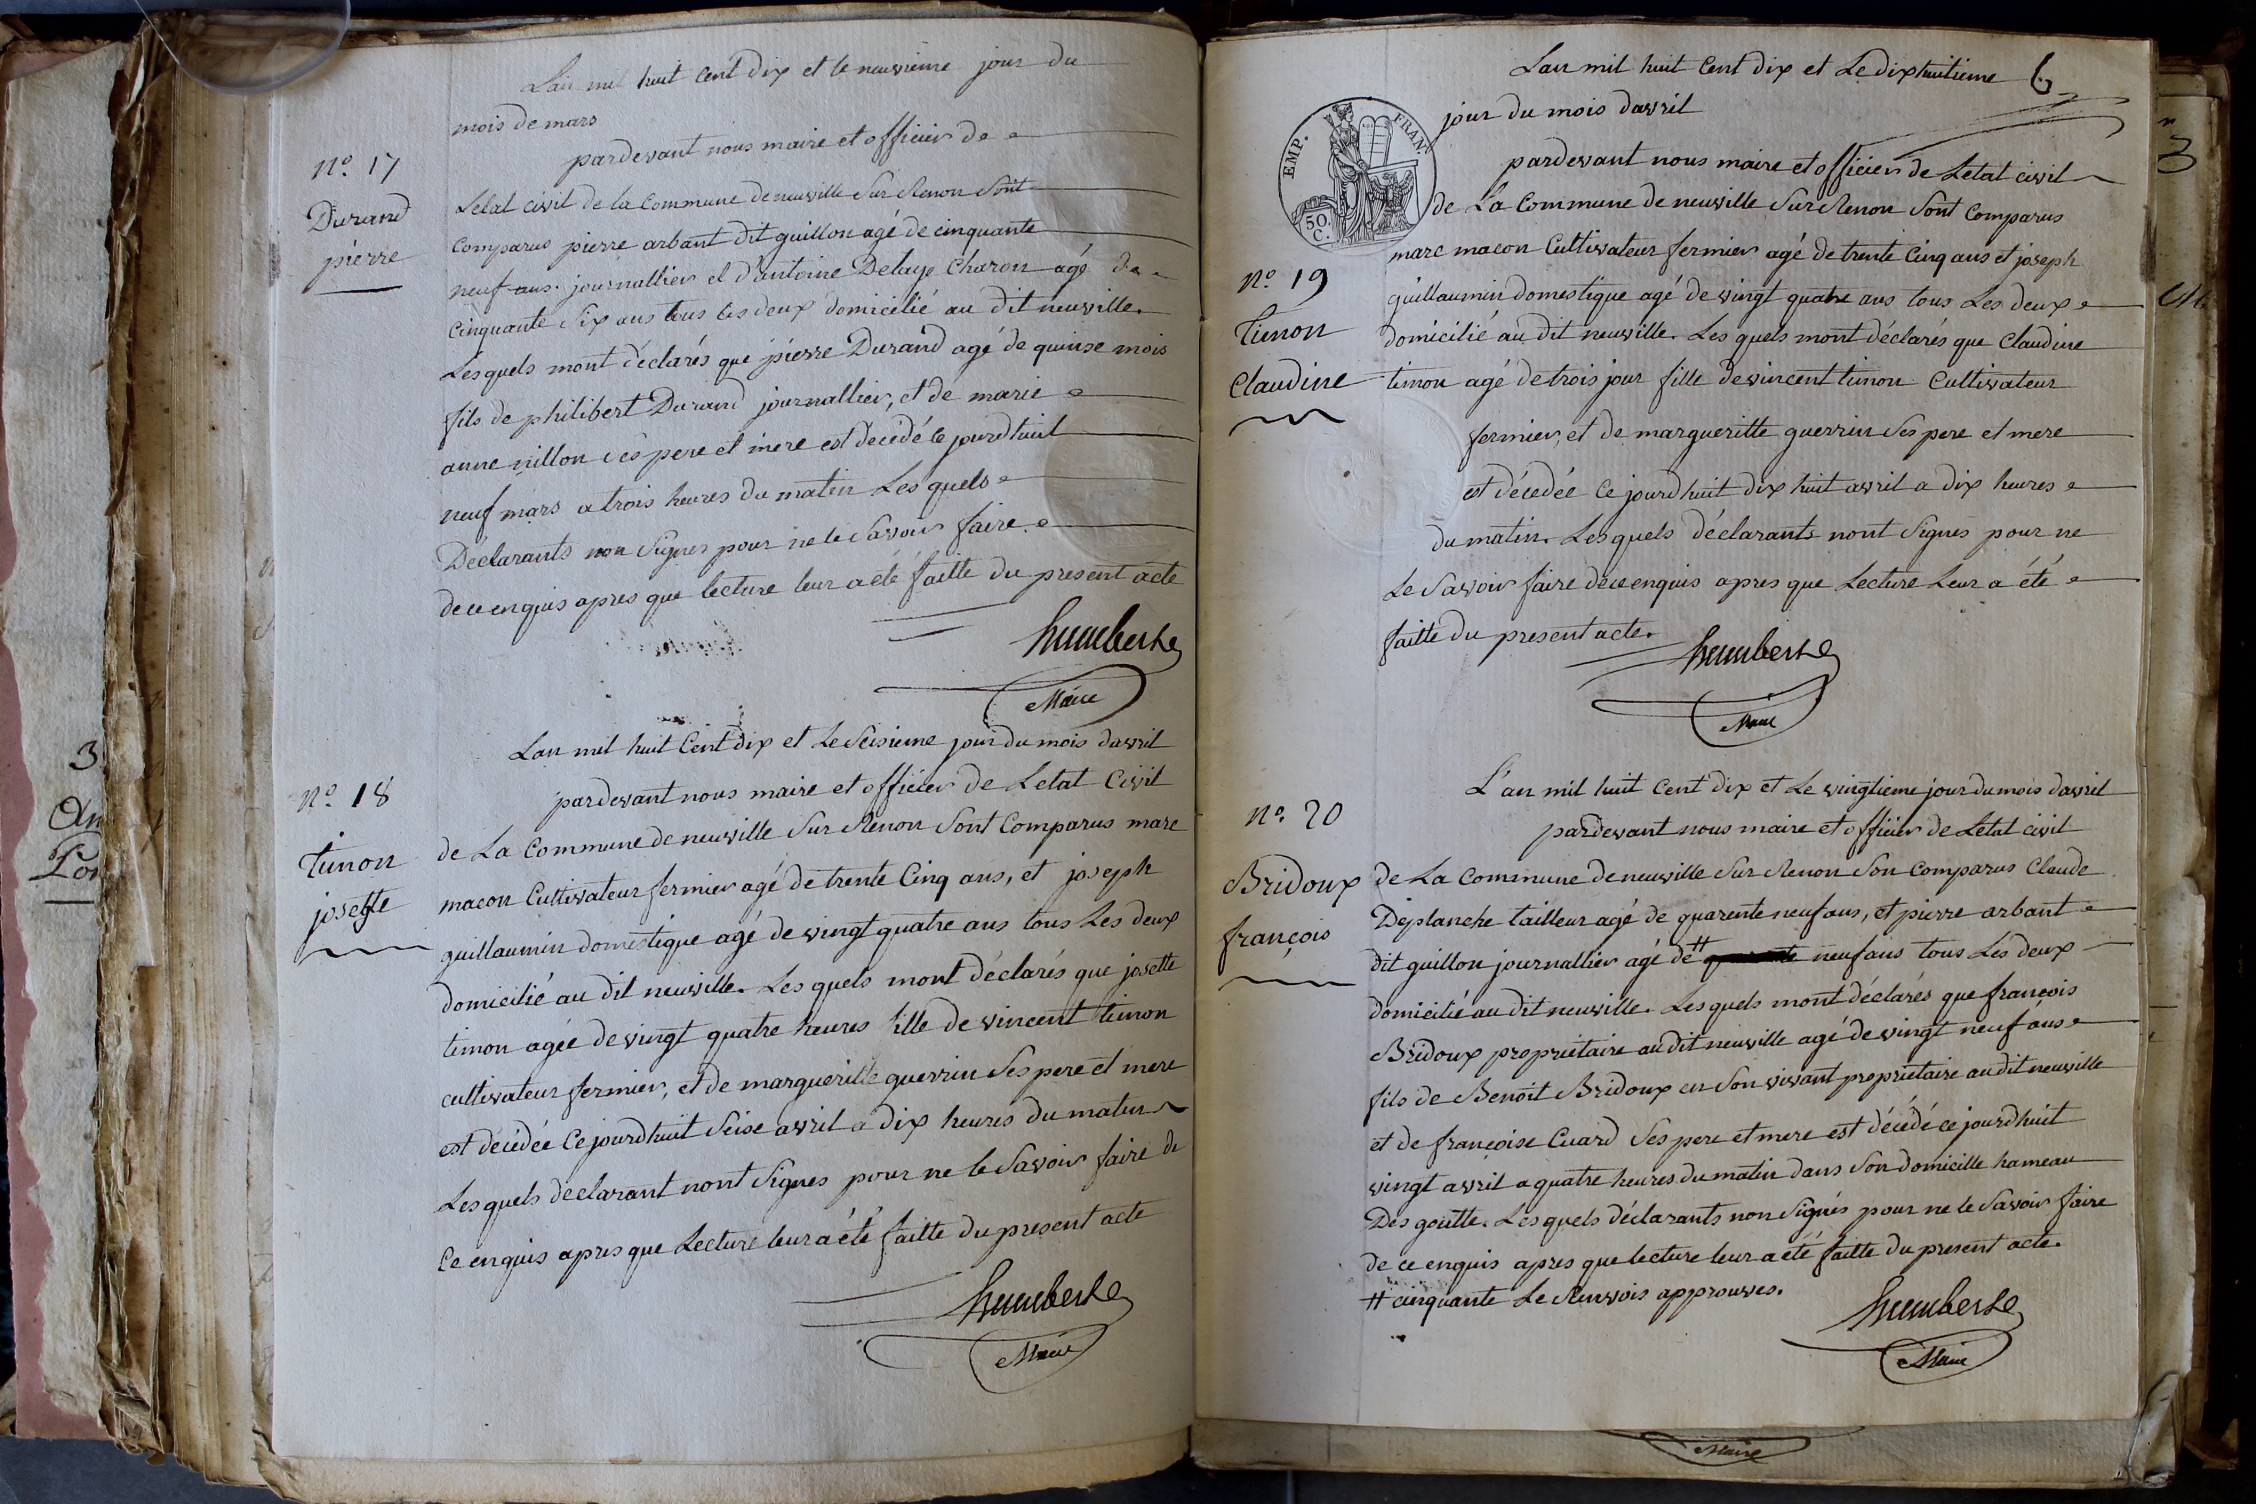 Lan mil huit Cent dix et le neuvieme jour du
mois de mars
pardevant nous maire et officier de
No. 17
Durand
pierre
Letat civil de la Commune de neuville Sur Renon Sont
Comparus pierre arbant dit guillon agé de cinquante
neuf ans journallier et d'Antoine Delaye Charon agé de
cinquante Six ans tous les deux domicilié au dit neuville.
Lesquels mont déclarés que pierre Durand agé de quinse mois
fils de philibert Durand journallier, et de marie
anne nillon Ses pere et mere est decédé ce jourdhuit
neuf mars a trois heures du matin Lesquels
Déclarants non Signes pour ne le Savoir faire
de ce enquis apres que lecture leur a été faitte du present acte
humbert
Maire
Lan mil huit Cent dix et Le Seisieme jour du mois davril
pardevant nous maire et officier de Letat Civil
No. 18
timon
josette
de La Commune de neuville Sur Renon Sont Comparus marc
macon Cultivateur fermier agé de trente Cinq ans, et joseph
guillaumin domestique agé de vingt quatre ans tous Les deux
domicilié au dit neuville. Les quels mont déclarés que josette
timon agée de vingt quatre heures fille de vincent timon
cultivateur fermier, et de margueritte guerrin Ses pere et mere
est décédée Ce jourdhuit Seise avril a dix heures du matin
Les quels declarant nont Signes pour ne le Savoir faire de
Ce enquis apres que Lecture leur a été faitte du present acte
humbert
Maire
Lan mil huit Cent dix et Le dixhuitieme
6
jour du mois davril
EMP. FRAN.
50 C.
pardevant nous maire et officier de Letat civil
de La Commune de neuville Sur Renon Sont Comparus
marc macon Cultivateur fermier agé de trente Cinq ans et joseph
No. 19
timon
Claudine
guillaumin domestique agé de vingt quatre ans tous Les deux
domicilié au dit neuville. Les quels mont déclarés que Claudine
timon agé de trois jour fille de vincent timon Cultivateur
fermier, et de margueritte guerrin Ses pere et mere
est décedée Ce jourdhuit dix huit avril a dix heures
du matin. Les quels déclarants nont Signes pour ne
Le Savoir faire de ce enquis apres que Lecture Leur a été
faitte du present acte.
humbert
Maire
L'an mil huit Cent dix et Le vingtieme jour du mois davril
pardevant nous maire et officier de Letat civil
No. 20
Bridoux
françois
de La Commune de neuville Sur Renon Son Comparus Claude
Deplanche tailleur agé de quarente neuf ans, et pierre arbant
dit guillon journallier agé de # neuf ans tous Les deux
domicilié au dit neuville. Lesquels mont déclarés que françois
Bridoux proprietaire au dit neuville agé de vingt neuf ans
fils de Benoit Bridoux en Son vivant proprietaire au dit neuville
et de françoise Cuard Ses pere et mere est décédé ce jourdhuit
vingt avril a quatre heures du matin dans Son domicille hameau
Des goutte. Lesquels déclarants non Signés pour ne le Savoir faire
de ce enquis apres que lecture leur a été faitte du present acte.
# cinquante Le Renvois approuves.
humbert
Maire
Maire
3